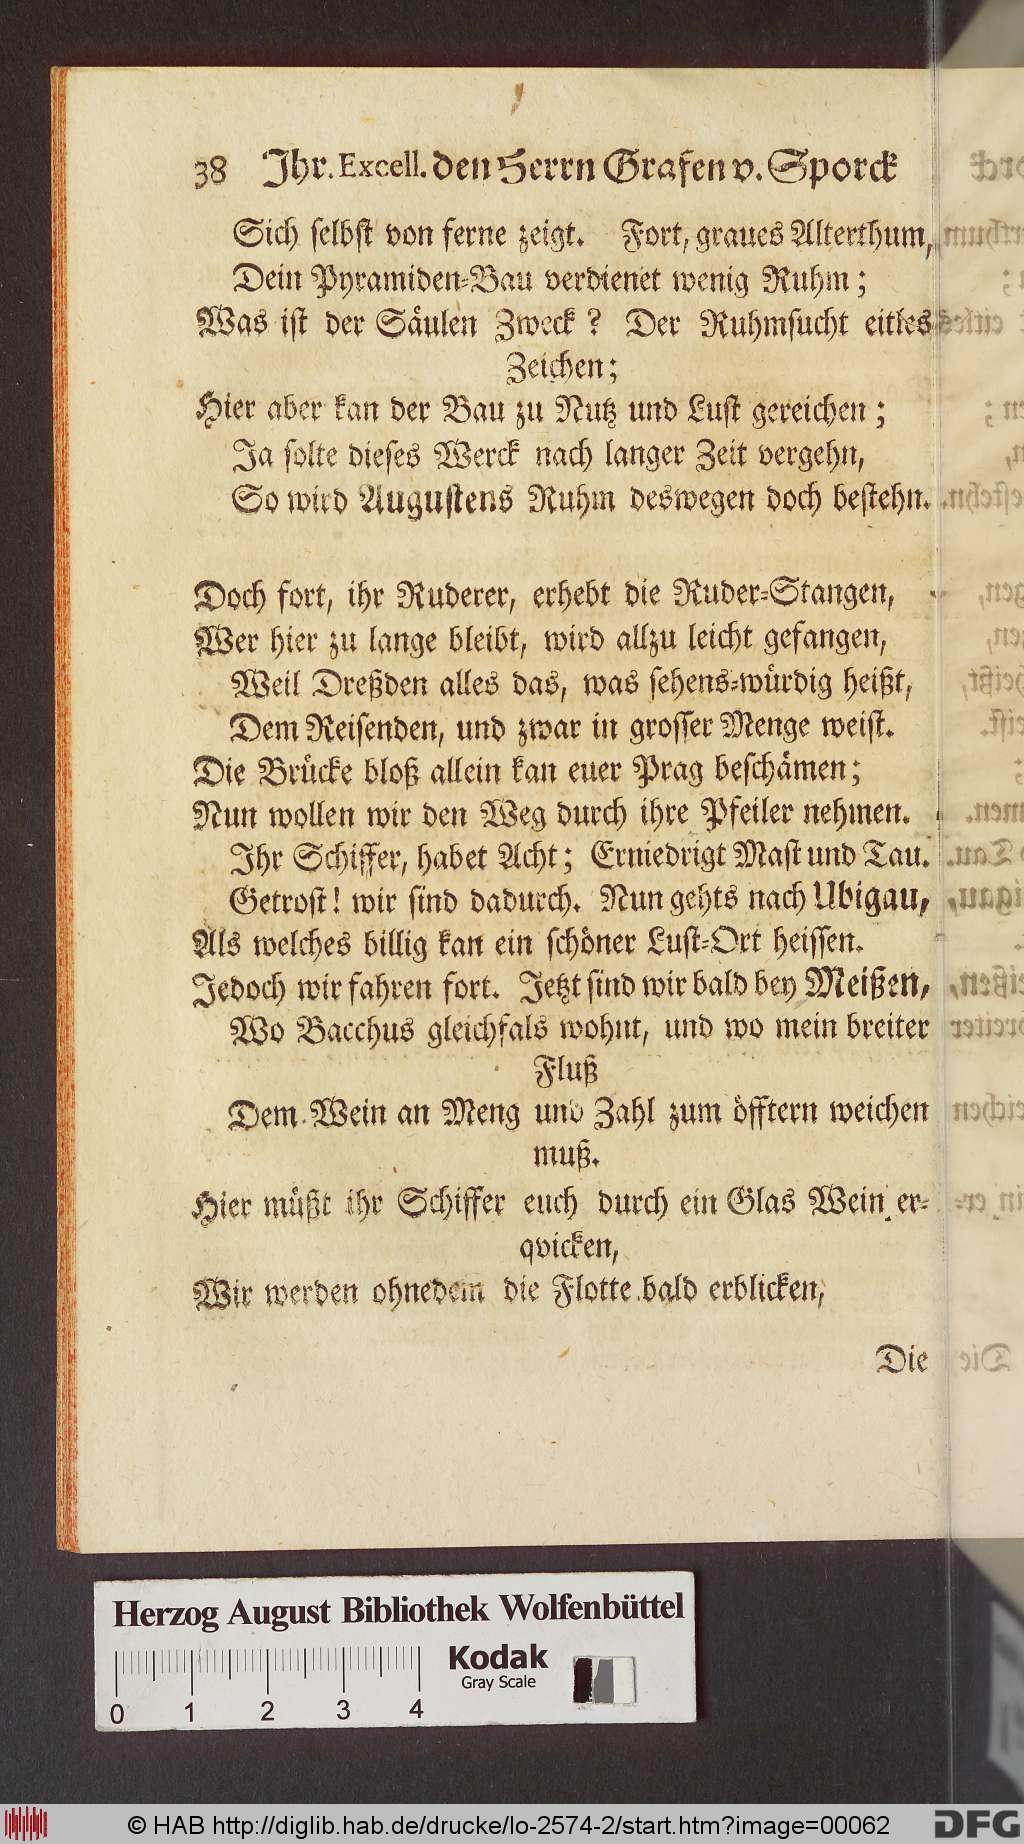 38 Ihr. Excell. den Herrn Grafen v. Sporck
Sich selbst von ferne zeigt. Fort, graues Alterthum,
Dein Pyramiden-Bau verdienet wenig Ruhm;
Was ist der Säulen Zweck? Der Ruhmsucht eitles
Zeichen;
Hier aber kan der Bau zu Nutz und Lust gereichen;
Ja solte dieses Werck nach langer Zeit vergehn,
So wird Augustens Ruhm deswegen doch bestehn.
Doch fort, ihr Ruderer, erhebt die Ruder-Stangen,
Wer hier zu lange bleibt, wird allzu leicht gefangen,
Weil Dreßden alles das, was sehens-würdig heißt,
Dem Reisenden, und zwar in grosser Menge weist.
Die Brücke bloß allein kan euer Prag beschämen;
Nun wollen wir den Weg durch ihre Pfeiler nehmen.
Ihr Schiffer, habet Acht; Erniedrigt Mast und Tau.
Getrost! wir sind dadurch. Nun gehts nach Ubigau,
Als welches billig kan ein schöner Lust-Ort heissen.
Jedoch wir fahren fort. Jetzt sind wir bald bey Meißen,
Wo Bacchus gleichfals wohnt, und wo mein breiter
Fluß
Dem Wein an Meng und Zahl zum öfftern weichen
muß.
Hier müßt ihr Schiffer euch durch ein Glas Wein er-
qvicken,
Wir werden ohnedem die Flotte bald erblicken,
Die
Herzog August Bibliothek Wolfenbüttel
Kodak
Gray Scale
0 1 2 3 4
© HAB http://diglib.hab.de/drucke/lo-2574-2/start.htm?image=00062
DFG